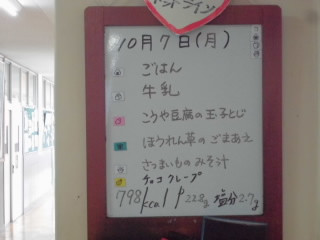 10月7日(月)
ごはん
牛乳
こうや豆腐の玉子とじ
ほうれん草のごまあえ
さつまいものみそ汁
チョコクレープ
798kcal P 22.8g 塩分2.7g